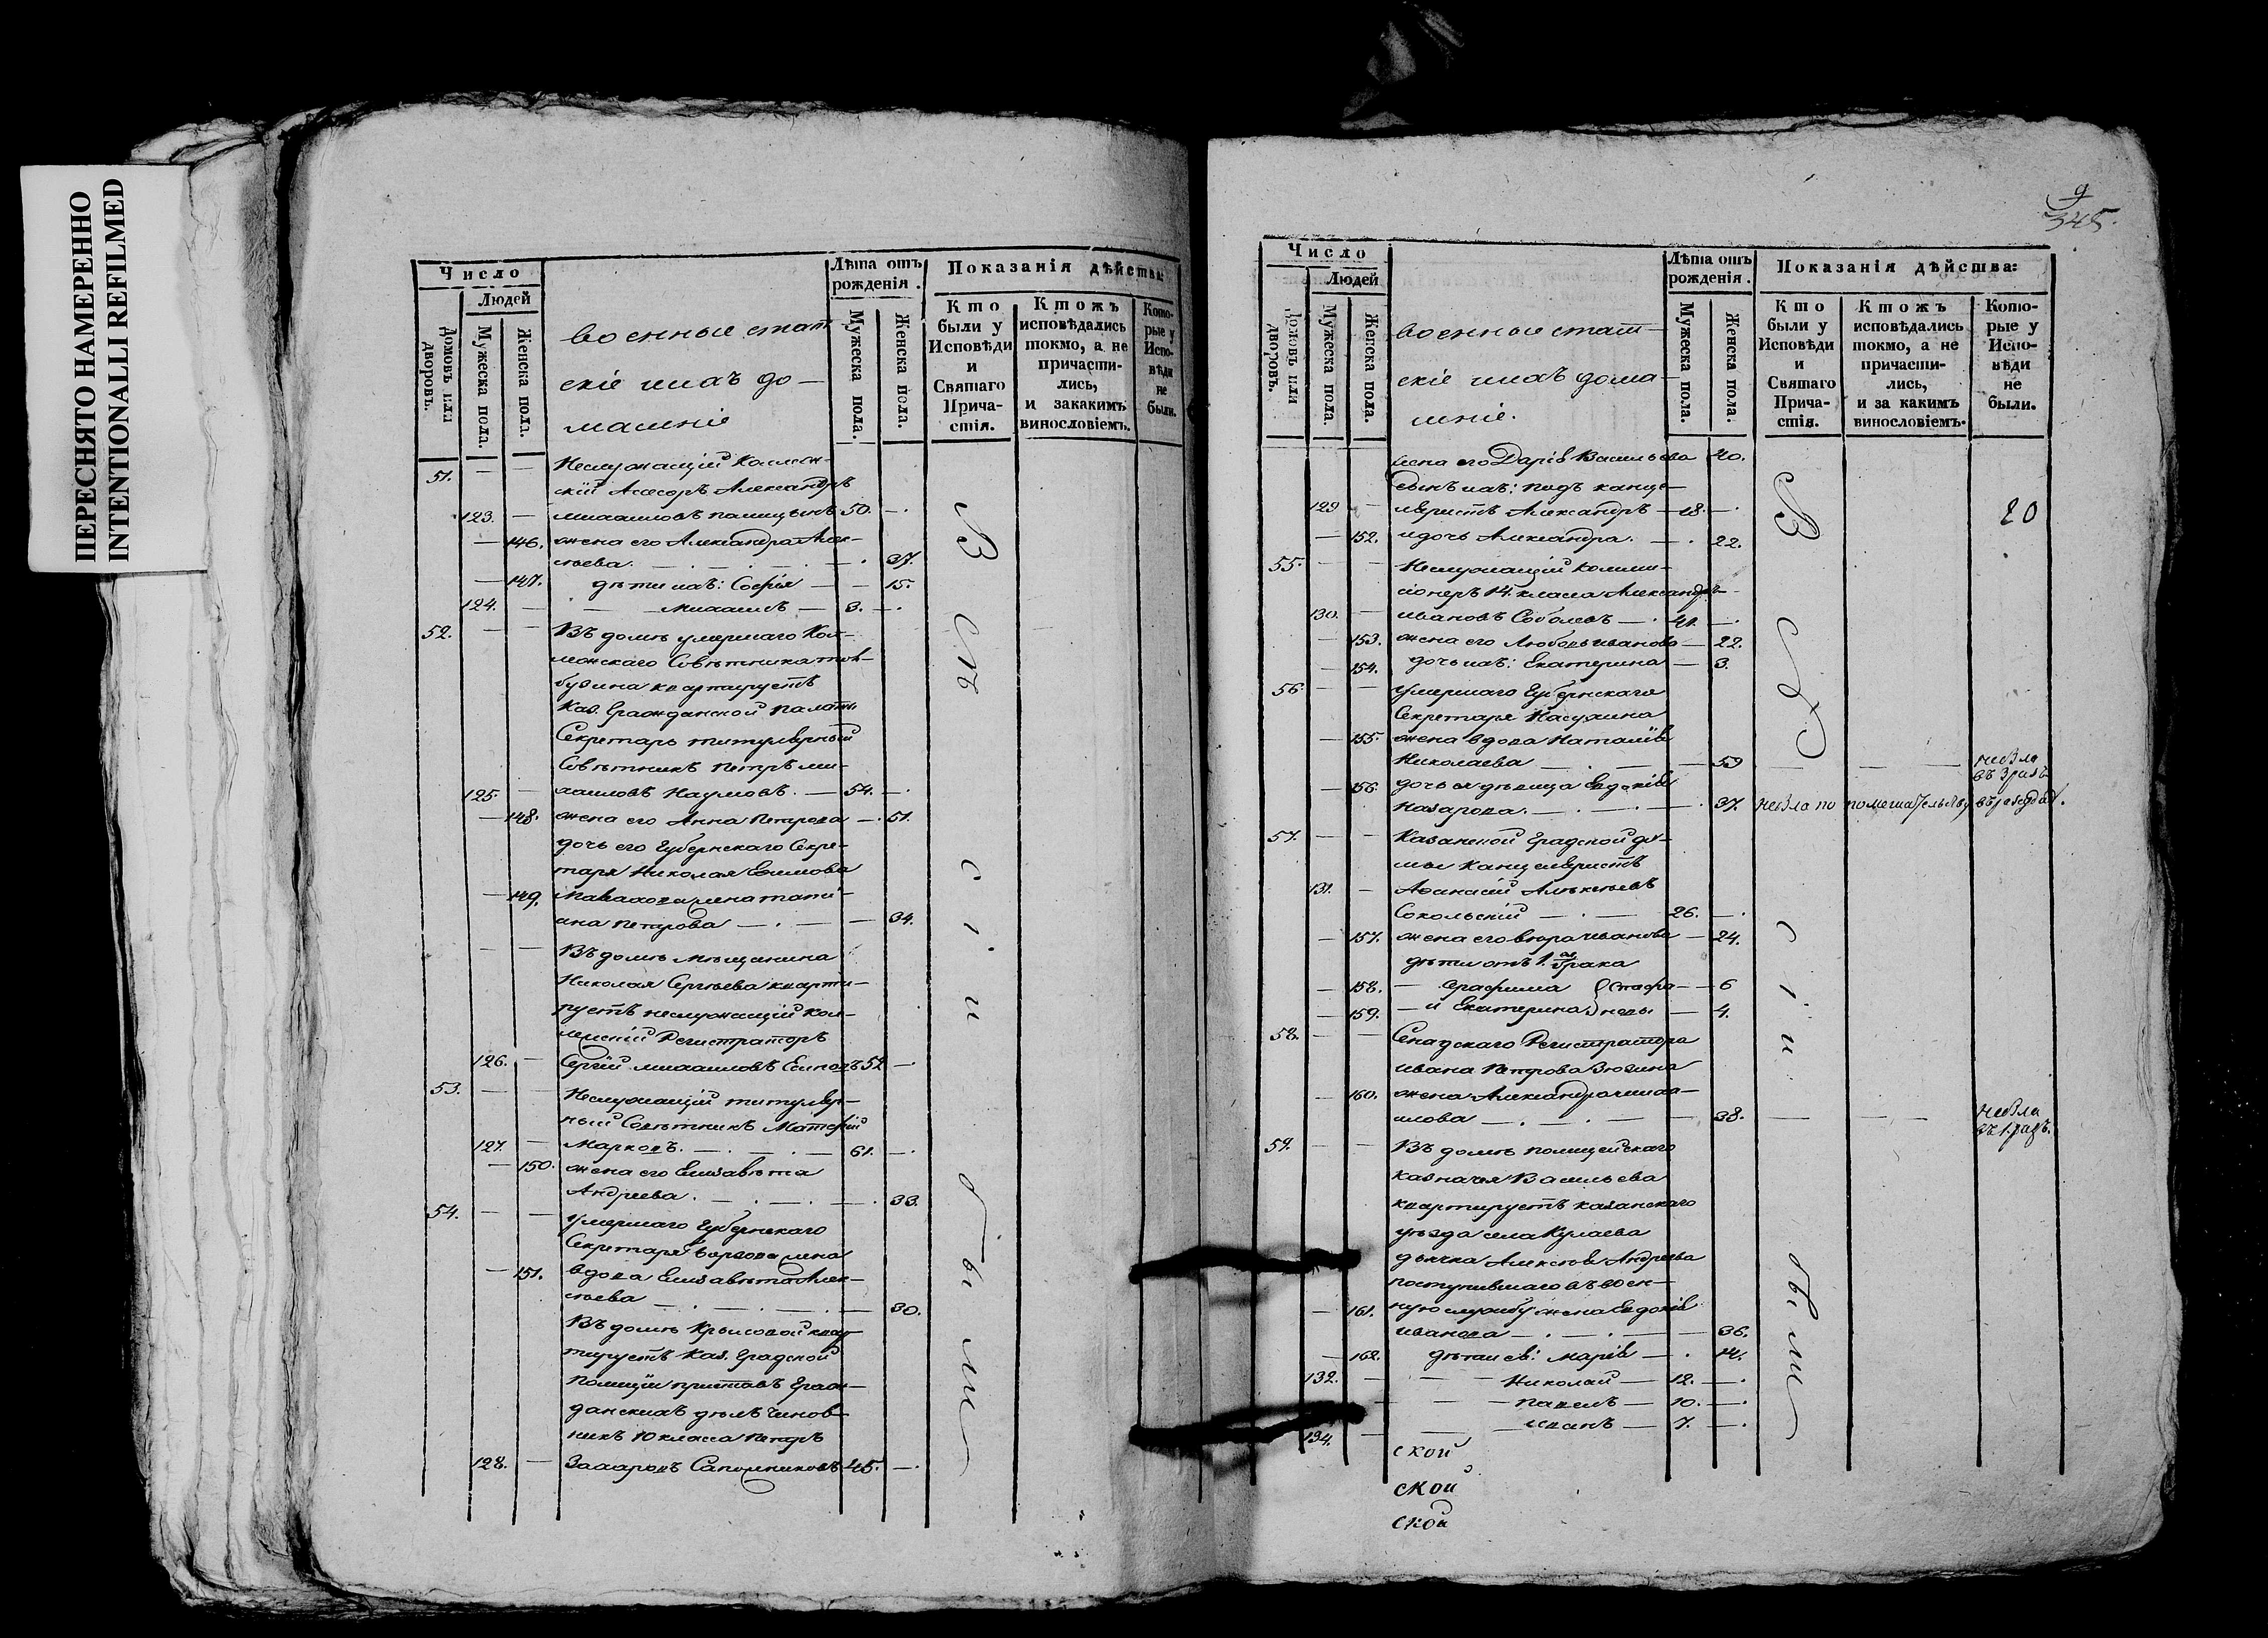 ПЕРЕСНЯТО НАМЕРЕННО
INTENTIONALLI REFILMED
Число
Людей
Домовъ или дворовъ.
Мужеска пола.
Женска пола.
военные стат
скіе и ихъ до—
машніе
Лѣта отъ рожденія.
Мужеска пола.
Женска пола.
Показанія дѣйства:
Кто были у Исповѣди и Святаго Прича- стія.
Ктожъ исповѣдались токмо, а не причасти- лись, и закакимъ винословіемъ.
Кото- рые у Испо- вѣди не были.
51. — — Неслужащій Коллеж-
скій Асесоръ Александръ
123. — михаиловъ палицынъ 50. —.
— 146. жена его Александра Алек-
сѣева. 37.
— 147. дѣти ихъ: Софія — — 15.
124. — — михаилъ — 3. —.
52. — — Въ домѣ умершаго Кол-
лежскаго Совѣтника
квартируетъ
Каз. Гражданской палаты
Секретарь титулярный
Совѣтникъ Петръ ми-
125. — хаиловъ Наумовъ. — 54. —.
— 148. жена его Анна Петрова —. 51.
дочь его Губернскаго Секре-
таря Николая Ефимова
— 149. жена тати-
ана Петрова —. — — 34.
— — Въ домѣ мѣщанина
Николая Сергѣева кварти-
руетъ неслужащій кол-
лежскій Регистраторъ
126. — Сергій михаиловъ Есиповъ 52 —
53. — — Неслужащій титуляр-
ный Совѣтникъ Матфій
127. — Марковъ. — 61. —.
— 150. жена его Елизавѣта
Андреева. 33.
54. — — умершаго Губернскаго
Секретаря жена
— 151. вдова Елизавѣта Алек-
сѣева 30.
Въ домѣ Крыловой квар-
тируетъ Каз. Градской
полиціи приставъ Граж-
данскихъ дѣлъ Чинов-
никъ 10 класса Петръ
128. — Захаровъ Сапожниковъ 45. —.
В
с
ѣ
с
і
и
б
ы
ли
9
345.
Число
Людей
Домовъ или дворовъ.
Мужеска пола.
Женска пола.
военные стат—
скіе и ихъ дома—
шніе.
Лѣта отъ рожденія.
Мужеска пола.
Женска пола.
Показанія дѣйства:
Кто были у Исповѣди и Святаго Прича- стія.
Ктожъ исповѣдались токмо, а не причасти- лись, и за какимъ винословіемъ.
Кото- рые у Испо- вѣди не были.
жена его Дарія Васильева 40.
сынъ ихъ: подъ канце-
129 — ляристъ Александръ — 18. —.
20
— 152. и дочь Александра. —. 22.
55. — — Неслужащій комми-
сіонеръ 14. класса Александръ
130. — ивановъ Соболевъ —. 41. —.
— 153. жена его Любовь иванова — 22.
— 154. дочь ихъ: Екатерина — 3.
56. — — умершаго Губернскаго
Секретаря
— 155. жена вдова Наталія
Николаева — 59 — — — небыла
въ 3 разъ
— 156. дочь ея дѣвица Евдокія
Назарова. 37. небыла по помешательству въ разсудкѣ.
57. — — Казанской Градской ду-
мы Канцеляристъ
131. — Афанасій Алексѣевъ
Сокольскій —. — 26. —.
— 157. жена его вѣра иванова — 24.
дѣти отъ 1. го брака
— 158. — Серафима — 6
— 159. — и Екатерина — 4.
58. — — Сенадскаго Регистратора
ивана Петрова Зюзина
— 160. жена Александра миха-
илова 38. — — небыла
въ 1. разъ.
59. — — Въ домѣ полицейскаго
казначея Васильева
квартируетъ казанскаго
уѣзда села Кулаева
дьячка Алексѣя Андреева
поступившаго въ воен-
— 161. ную службу жена Евдокія
иванова 36.
— 162. дѣти ея: марія —. 14.
132. — — Николай — 12. —.
— — павелъ — 10. —.
134. — — иванъ — 7. —.
ской
ской
ской
В
с
ѣ
с
і
и
бы
ли